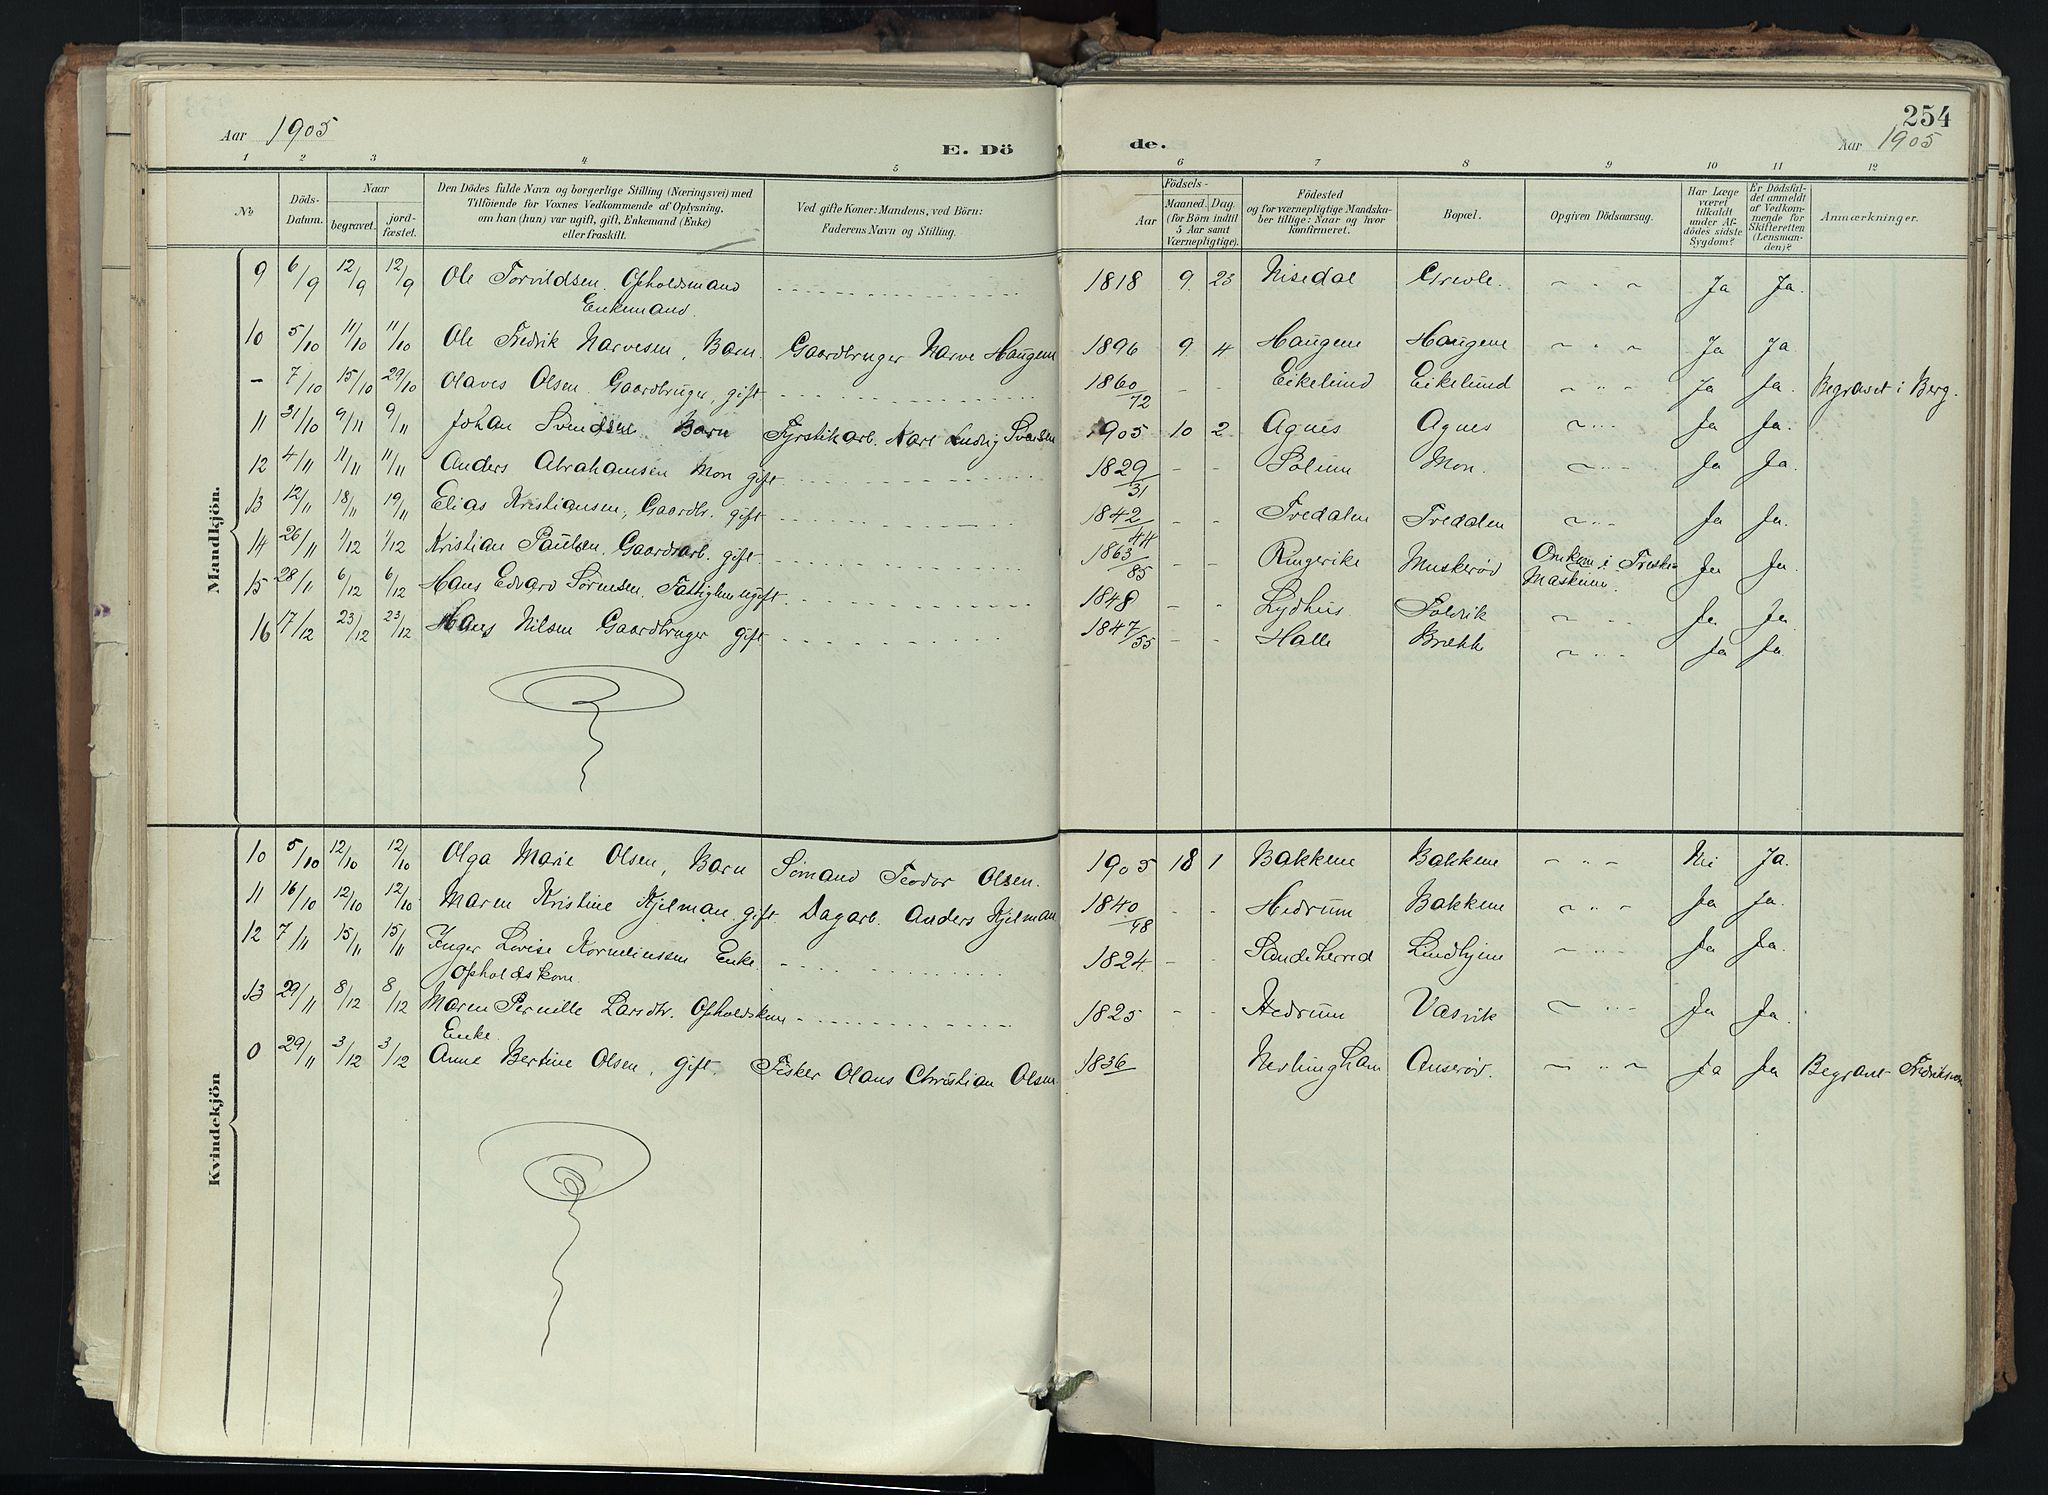 Aar 1905
E. Dö
de.
254
Aar 1905
1 2 3 4 5 6 7 8 9 10 11 12
No
Döds-
Datum.
Naar
begravet.
jord-
fæstet.
Den Dödes fulde Navn og borgerlige Stilling (Næringsvei) med
Tilföiende for Voxnes Vedkommende af Oplysning,
om han (hun) var ugift, gift, Enkemand (Enke)
eller fraskilt.
Ved gifte Koner: Mandens, ved Börn:
Faderens Navn og Stilling.
Födsels-
Aar
Maaned. Dag.
(for Börn indtil
5 Aar samt
Værnepligtige).
Födested
og for værnepligtige Mandska-
ber tillige: Naar og hvor
konfirmeret.
Bopæl.
Opgiven Dödsaarsag.
Har Læge
været
tilkaldt
under Af-
dödes sidste
Sygdom?
Er Dödsfal-
det anmeldt
af Vedkom-
mende for
Skifteretten
(Lensman-
den)?
Anmærkninger.
Mandkjön.
9 6/9 12/9 12/9 Ole Torvildsen. Opholdsmand 1818 9. 23 Nisedal Grevle. Ja Ja.
Enkemand.
10 5/10 11/10 11/10 Ole Fredrik Narvesen, Barn. Gaardbruger Narve Haugene 1896 9 4 Haugene Haugene Ja Ja
- 7/10 15/10 29/10 Olaves Olsen. Gaardbruger, gift 1860/72 - - Eikelund Eikelund Ja Ja. Begravet i Berg.
11 31/10 9/11 9/11 Johan Svendsen Barn Fyrstikarb. Karl Ludvig Svendsen 1905 10 2 Agnes Agnes Ja Ja.
12 4/11 11/11 11/11 Anders Abrahamsen Mon gift 1829/31 - - Solum Mon. Ja Ja.
13 12/11 18/11 19/11 Elias Kristiansen, Gaardbr. gift 1842/44 - - Tredalen Tredalen Ja Ja.
14 26/11 1/12 1/12 Kristian Paulsen, Gaardsarb. gift. 1863/85 Ringerike Muskerød Omkom i Treske Ja Ja.
Maskinen.
15 28/11 6/12 6/12 Hans Edvard Sørensen. Fattiglem ugift. 1848 - - Lydhus Ja. Ja.
16 17/12 23/12 23/12 Hans Nilsen Gaardbruger gift 1847/55 - - Halle Brekk Ja Ja.
Kvindekjön
10 5/10 12/10 12/10 Olga Marie Olsen, Barn Sømand Teodor Olsen. 1905 18 1 Bakkene Bakkene Nei Ja.
11 16/10 12/10 12/10 Maren Kristine Kjelman. gift Dagarb. Anders Kjelman 1840/48 - - Hedrum Bakkene Ja Ja.
12 7/11 15/11 15/11 Inger Lovise Korneliussen Enke. 1824. - - Sandeherred Lindhjem Ja Ja.
Opholdskone.
13 29/11 8/12 8/12 Maren Pernille Larsdtr. Opholdskone 1825 - - Hedrum Vasvik Ja Ja.
Enke.
0 29/11 3/12 3/12 Anne Bertine Olsen, gift. Fisker Olaus Christian Olsen 1836 Nevlingham Auserød. Ja Ja Begravet Fredriksvern